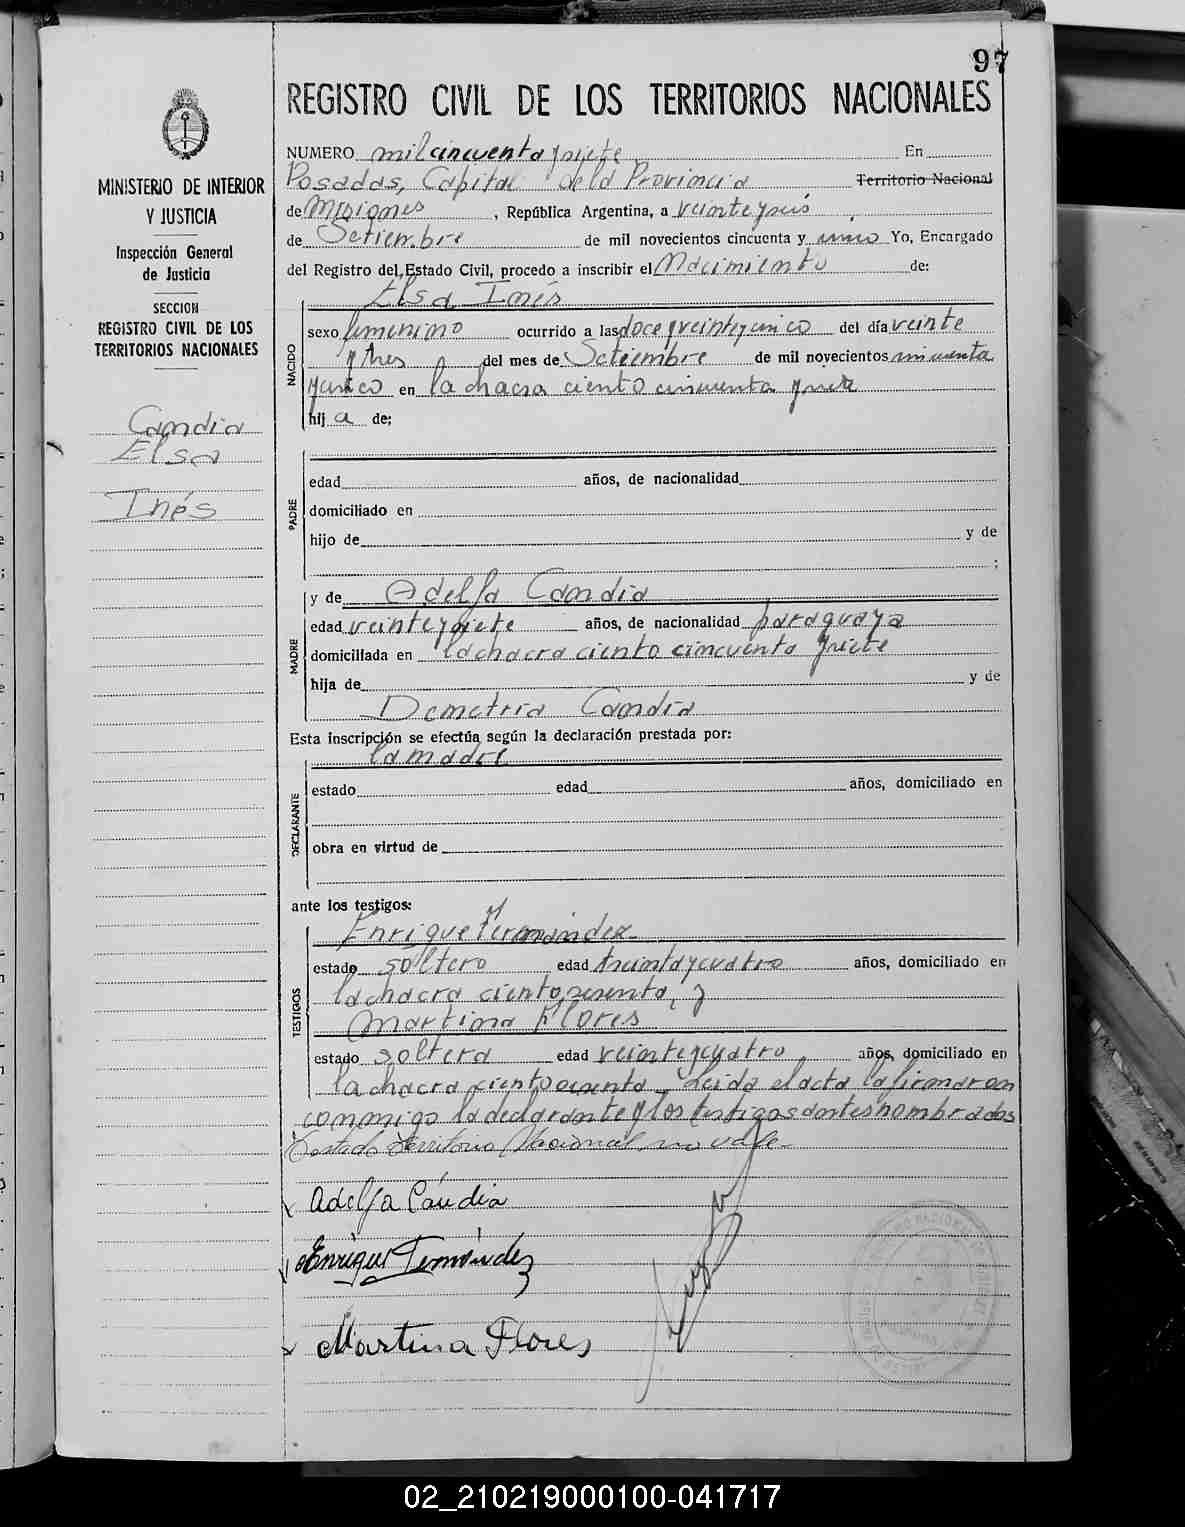 97
REGISTRO CIVIL DE LOS TERRITORIOS NACIONALES
MINISTERIO DE INTERIOR
Y JUSTICIA
Inspección General
de Justicia
SECCION
REGISTRO CIVIL DE LOS
TERRITORIOS NACIONALES
Candia
Elsa
Inés
NUMERO mil cincuenta y siete En
Posadas, Capital de la Provincia Territorio Nacional
de Misiones, República Argentina, a veinte y seis
de Setiembre de mil novecientos cincuenta y uno Yo, Encargado
del Registro del Estado Civil, procedo a inscribir el Nacimiento de:
Elsa Inés
NACIDO
sexo femenino ocurrido a las doce y veinte y cinco del día veinte
y tres del mes de Setiembre de mil novecientos cincuenta
y en la chacra ciento cincuenta y siete
hija de:
PADRE
edad años, de nacionalidad
domiciliado en
hijo de y de
;
MADRE
y de Adelfa Candia
edad veinte y siete años, de nacionalidad paraguaya
domiciliada en la chacra ciento cincuenta y siete
hija de y de
Demetria Candia
Esta inscripción se efectúa según la declaración prestada por:
la madre
DECLARANTE
estado edad años, domiciliado en
obra en virtud de
ante los testigos:
TESTIGOS
Enrique Fernández
estado soltero edad treinta y cuatro años, domiciliado en
la chacra ciento sesenta, y
Martina Flores
estado soltera edad veinte y cuatro años, domiciliado en
la chacra ciento sesenta Leida el acta la firmaron
conmigo la declarante y los testigos antes nombrados
Testado Territorio Nacional no vale
Adelfa Candia
Enrique Fernández
Martina Flores
02_210219000100-041717